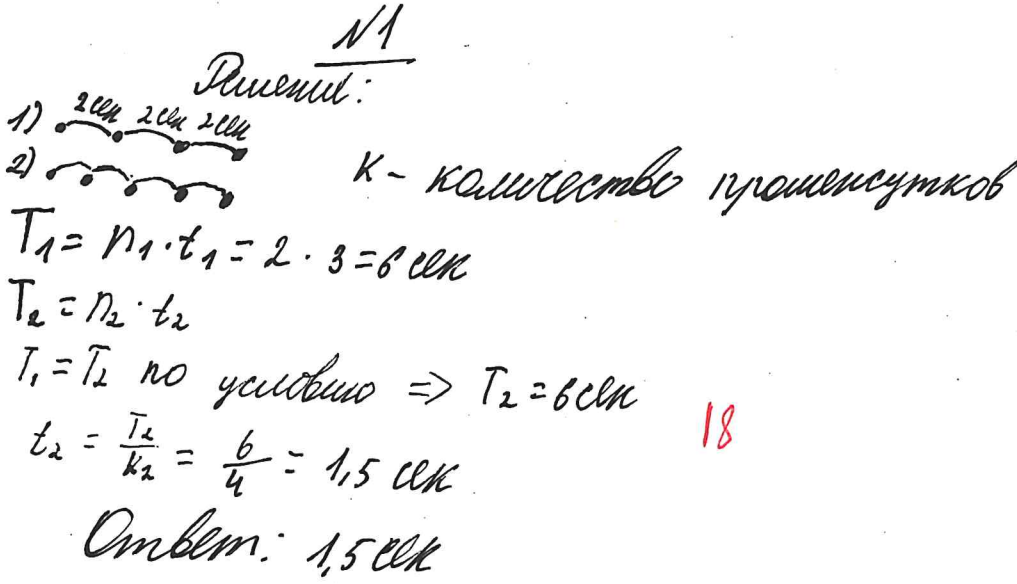 №1
Решение:
1) 2 сек 2 сек 2 сек
2)
К - количество промежутков
T₁ = n₁ · t₁ = 2 · 3 = 6 сек
T₂ = n₂ · t₂
T₁ = T₂ по условию => T₂ = 6 сек
t₂ = T₂/K₂ = 6/4 = 1,5 сек
18
Ответ: 1,5 сек